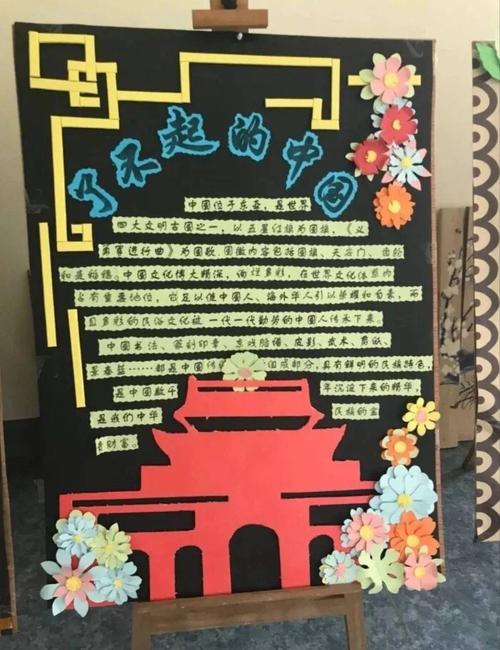 了不起的中国
中国位于东亚，是世界
四大文明古国之一，以五星红旗为国旗，《义
勇军进行曲》为国歌，国徽内容包括国旗、天安门、齿轮
和麦稻穗。中国文化博大精深、绚烂多彩，在世界文化体系内
占有重要地位，它足以使中国人、海外华人引以荣耀和自豪，而
且多彩的民俗文化被一代一代勤劳的中国人传承下来。
中国书法、篆刻印章、京戏脸谱、皮影、武术、剪纸、
景泰蓝……都是中国传 组成部分，具有鲜明的民族特色
是中国数千 年沉淀下来的精华，
是我们中华 民族的宝
贵财富。